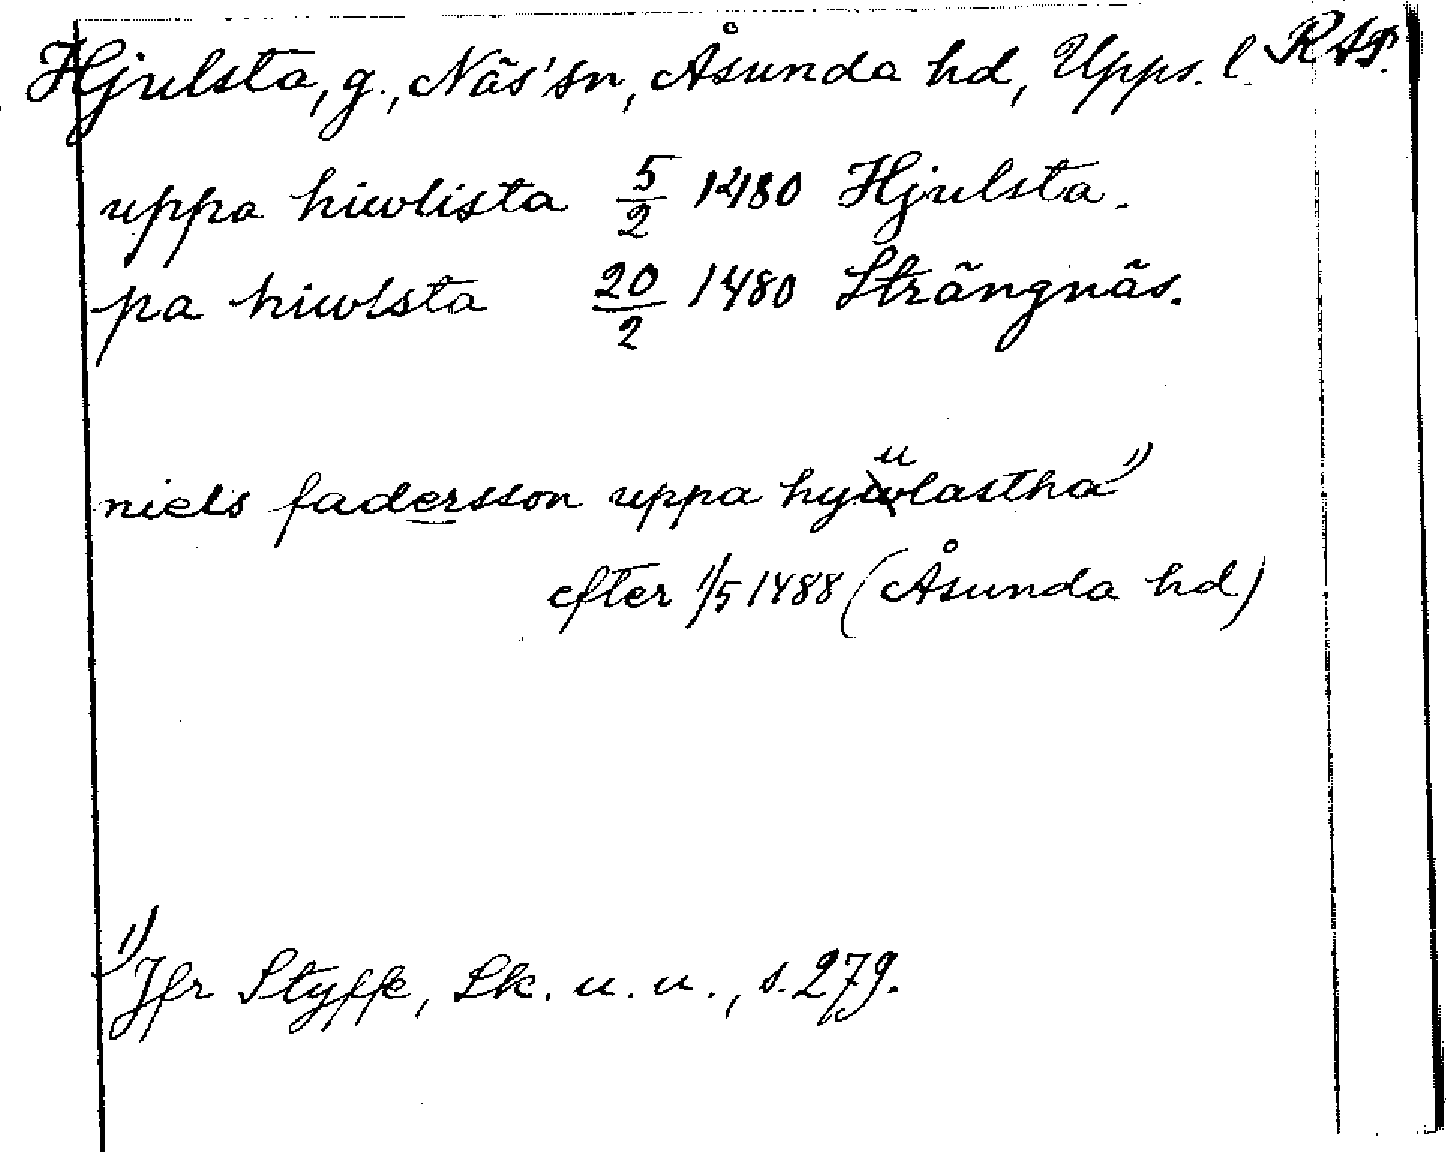 Hjulsta, g., Näs' sn, Åsunda hd, Upps. l. RAP.
uppa hiwlista 5/2 1480 Hjulsta.
pa hiwlsta 20/2 1480 Strängnäs.
niels fadersson uppa hyulastha 1)
efter 1/5 1488 (Åsunda hd)
1) Jfr Styffe, Sk. u. u., s. 279.